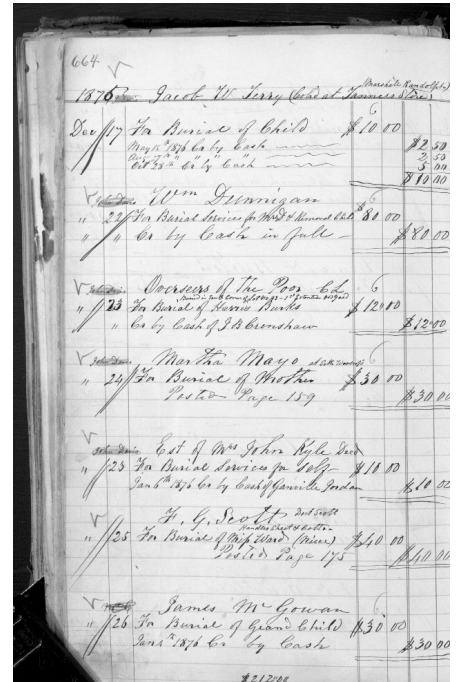 664
(Marshall Randolph)
1875 Jacob W Terry (Cold at Frances Store)
6
Dec 17 For Burial of Child $10 00
May 15th 1876 Cr by Cash $2 50
Aug 7th " " " " 2 50
Oct 28th Cr " by " Cash " 5 00
$10 00
Wm Dunnigan 6
" 22 For Burial Services for $80 00
" " Cr by Cash in full $80 00
Overseers of the Poor C L 6
John Davis
" 23 For Burial of Harris Burks $12 00
" Cr by Cash of J B Crenshaw $12 00
Martha Mayo 6
John Davis
" 24 For Burial of Mother $30 00
Posted Page 159 $30 00
Est of Mrs John Kyle Decd
John Davis
" 23 For Burial Services for self $10 00
Jan 6th 1876 Cr by Cash of Granville Jordan $10 00
F. G. Scott
" 25 For Burial of Miss Ward (Niece) $40 00
Posted Page 175 $40 00
James McGowan 6
" 26 For Burial of Grand Child $30 00
Jan 4th 1876 Cr by Cash $30 00
$212 00